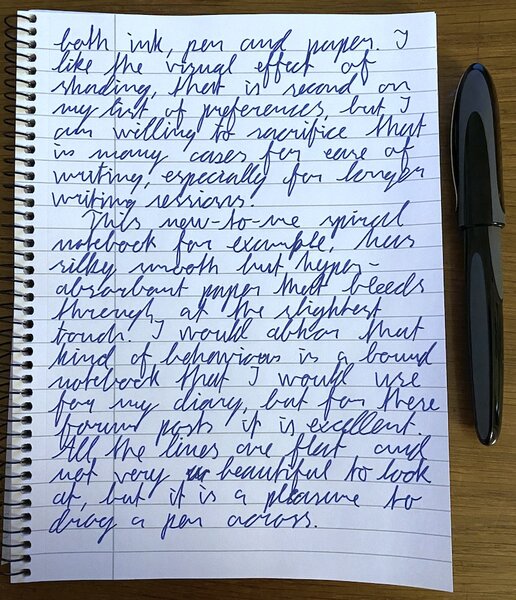 both ink, pen and paper. I
like the visual effect of
shading, that is second on
my list of preferences, but I
am willing to sacrifice that
in many cases for ease of
writing, especially for longer
writing sessions.
This new-to-me spiral
notebook for example, has
silky smooth but hyper-
absorbant paper that bleeds
through at the slightest
touch. I would abhor that
kind of behaviour in a bound
notebook that I would use
for my diary, but for these
forum posts it is excellent.
All the lines are flat and
not very beautiful to look
at, but it is a pleasure to
drag a pen across.